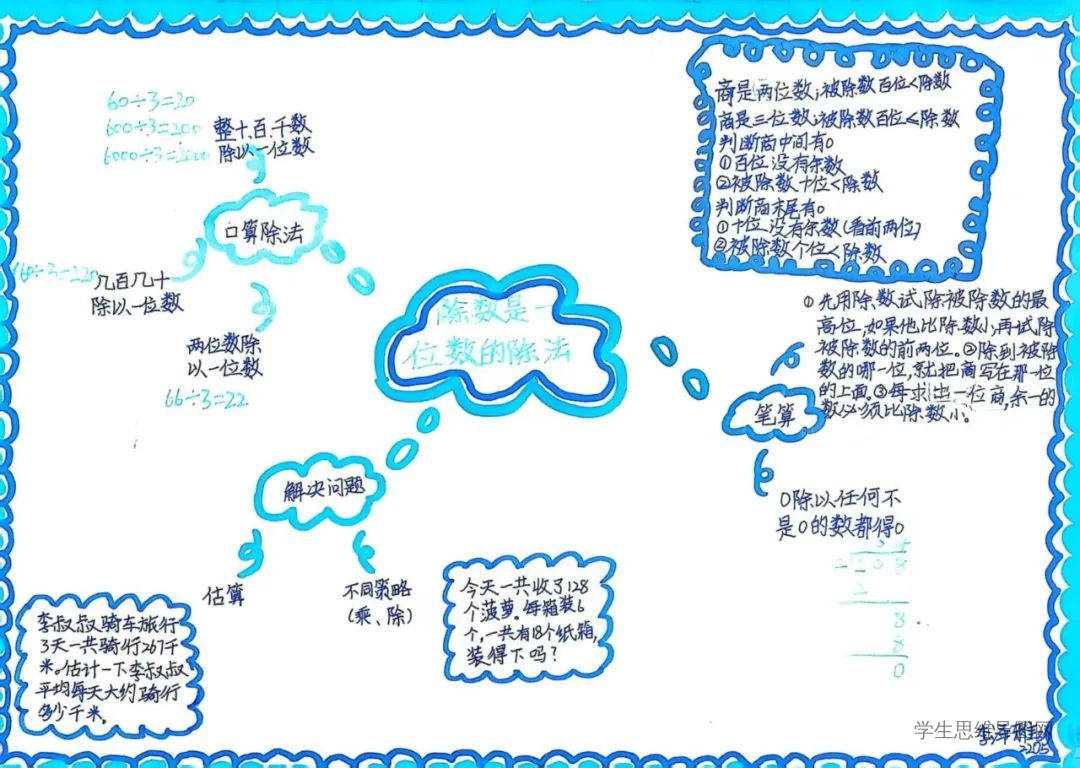 除数是一
位数的除法
口算除法
60÷3=20
600÷3=200
6000÷3=2000
整十、百、千数
除以一位数
几百几十
除以一位数
两位数除
以一位数
66÷3=22
商是两位数;被除数百位<除数
商是三位数;被除数百位≤除数
判断商中间有0
①百位没有余数
②被除数十位<除数
判断商末尾有0
①十位没有余数(看前两位)
②被除数个位<除数
笔算
①先用除数试除被除数的最
高位,如果他比除数小,再试除
被除数的前两位。②除到被除
数的哪一位,就把商写在那一位
的上面。③每求出一位商,余一的
数必须比除数小。
0除以任何不
是0的数都得0
2
8
8
0
解决问题
估算
李叔叔骑车旅行
3天一共骑行267千
米。估计一下李叔叔
平均每天大约骑行
多少千米。
不同策略
(乘、除)
今天一共收了128
个菠萝。每箱装6
个,一共有18个纸箱,
装得下吗?
学生思维导图网
2205